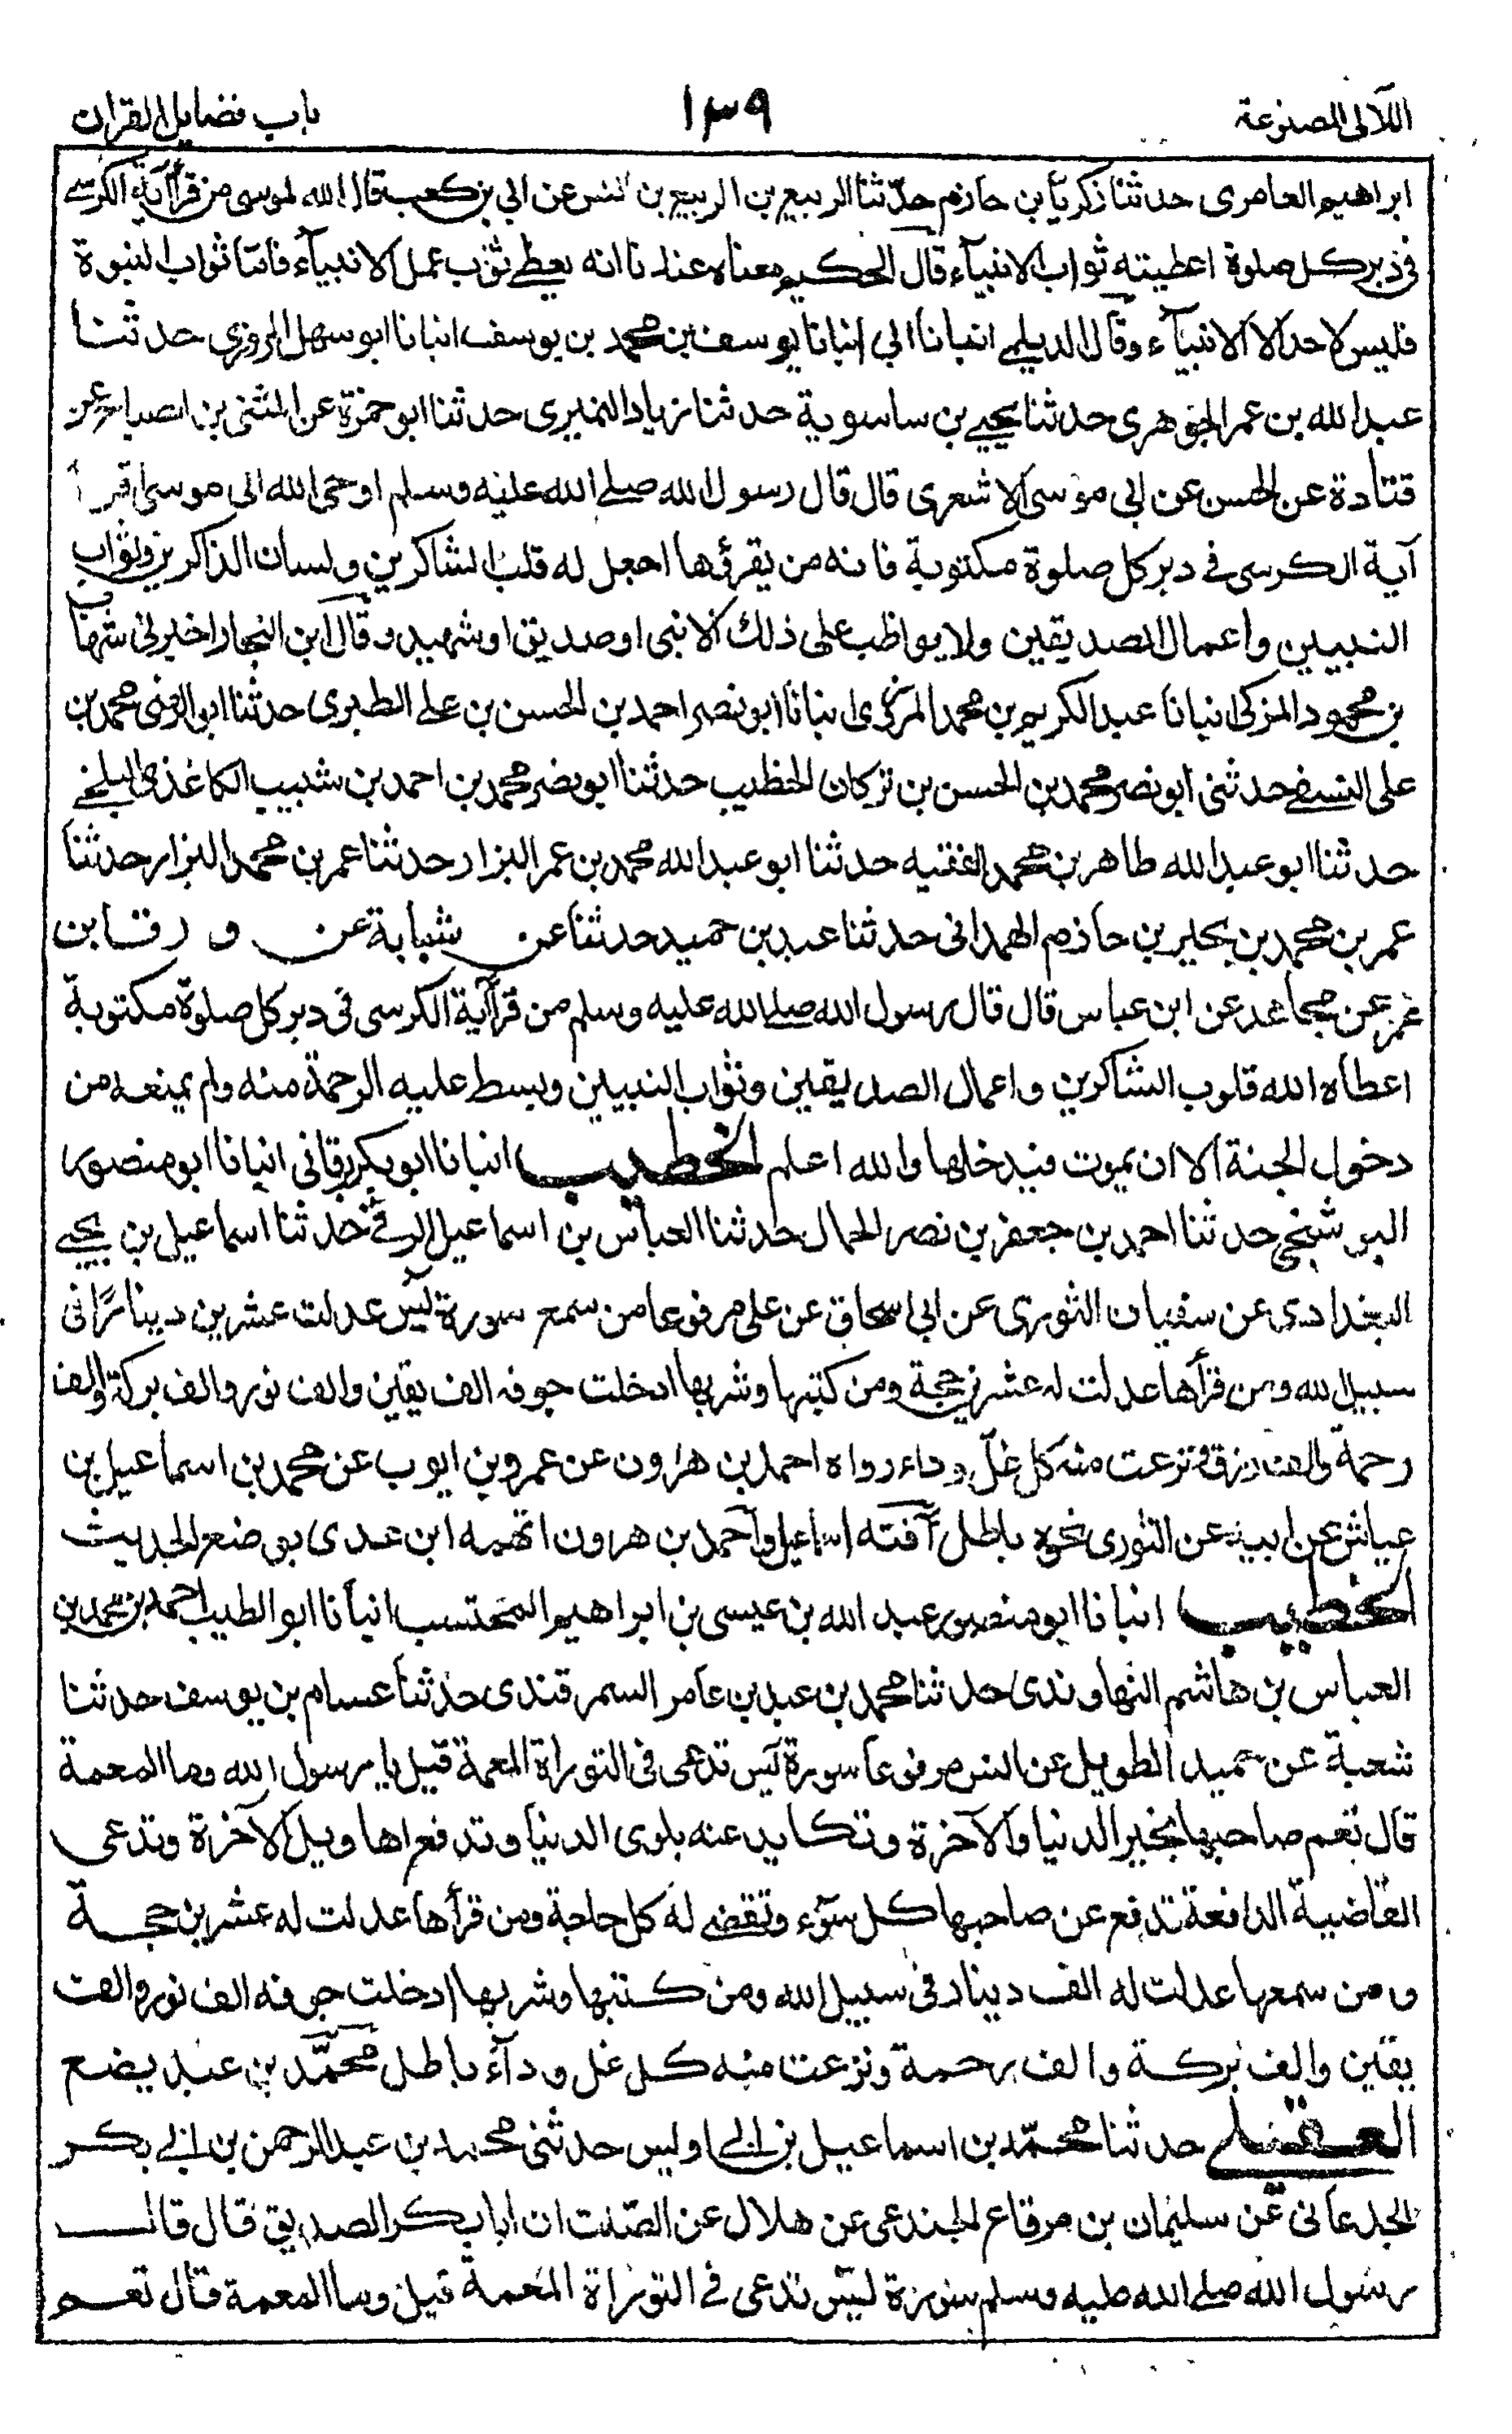 اللآلى المصنوعة ١٣٩ باب فضايل القران
ابراهيم العامرى حدثنا زكريا بن حازم حدثنا الربيع بن الربيع بن انس عن ابي بن كعب قال الله لموسى من قرأ آية الكرسے
فى دبر كل صلوة اعطيته ثواب الانبياء قال الحكيم معناه عندنا انه يعطے ثوب عمل الانبيآء فاما ثواب النبوة
فليس لاحد الا الانبيآء وقال الديلمے انبانا ابي انبانا يوسف بن محمد بن يوسف انبانا ابو سهل المروزى حدثنا
عبد الله بن عمر الجوهرى حدثنا يحيے بن ساسوية حدثنا زياد النميرى حدثنا ابو حمزة عن المثنى بن الصباح عن
قتادة عن الحسن عن ابي موسى الاشعرى قال قال رسول الله صلے الله عليه وسلم اوحى الله الى موسى اقرأ
آية الكرسى فى دبر كل صلوة مكتوبة فانه من يقرؤها اجعل له قلب الشاكرين ولسان الذاكرين وثواب
النبيين واعمال الصديقين ولا يواظب على ذلك الا نبى او صديق او شهيد وقال ابن النجار اخبرنى شهاب
بن محمود المزكى انبانا عبد الكريم بن محمد المزكى انبانا ابو نصر احمد بن الحسن بن علے الطبرى حدثنا ابى الغنى محمد بن
على النسفے حدثنى ابو نصر محمد بن الحسن بن تركان الخطيب حدثنا ابو نصر محمد بن احمد بن شبيب الكاغذى البلخے
حدثنا ابو عبد الله طاهر بن محمد الفقيه حدثنا ابو عبد الله محمد بن عمر البزار حدثنا عمر بن محمد البزار حدثنا
عمر بن محمد بن بجير بن حازم الهمدانى حدثنا عبد بن حميد حدثنا عن شبابة عن و رقا بن
عمر عن مجاهد عن ابن عباس قال قال رسول الله صلے الله عليه وسلم من قرأ آية الكرسى فى دبر كل صلوة مكتوبة
اعطاه الله قلوب الشاكرين واعمال الصديقين وثواب النبيين وبسط عليه الرحمة منه ولم يمنعه من
دخول الجنة الا ان يموت فيدخلها والله اعلم الخطيب انبانا ابو بكر برقانى انبانا ابو منصور
البوشنجى حدثنا احمد بن جعفر بن نصر الحمال حدثنا العباس بن اسماعيل الرقے حدثنا اسماعيل بن يحيے
البغدادى عن سفيان الثورى عن ابى اسحاق عن على مرفوعا من سمع سورة يٰس عدلت عشرين دينارًا فى
سبيل الله ومن قرأها عدلت له عشرين حجة ومن كتبها وشربها ادخلت جوفه الف يقين والف نور والف بركة والف
رحمة والف رزق ونزعت منه كل غلّ وداء رواه احمد بن هارون عن عمرو بن ايوب عن محمد بن اسماعيل بن
عياش عن ابيه عن الثورى نحوه باطل آفته اسماعيل واحمد بن هرون اتهمه ابن عدى بوضع الحديث
الخطيب انبانا ابو منصور عبد الله بن عيسى بن ابراهيم المحتسب انبأنا ابو الطيب احمد بن محمد بن
العباس بن هاشم النهاوندى حدثنا محمد بن عبد بن عامر السمرقندى حدثنا عسام بن يوسف حدثنا
شعبة عن حميد الطويل عن انس مرفوعا سورة يٰس تدعى فى التوراة المعمة قيل يا رسول الله وما المعمة
قال تعم صاحبها بخير الدنيا والآخرة وتكابد عنه بلوى الدنيا وتدفع اهاويل الآخرة وتدعى
القاضية الدافعة تدفع عن صاحبها كل سوٓء وتقضے له كل حاجة ومن قرأها عدلت له عشرين حجـــة
ومن سمعها عدلت له الف دينار فى سبيل الله ومن كتبها وشربها ادخلت جوفه الف نور والف
يقين والف بركة والف رحمة ونزعت منه كل غل ودآء باطل محمّد بن عبد يضع
العقيلے حدثنا محمّد بن اسماعيل بن ابي اويس حدثنى محمد بن عبد الرحمن بن ابے بكر
الجدعانى عن سليمان بن مرقاع الجندعى عن هلال عن الصّلت ان ابا بكر الصديق قال قال
رسول الله صلے الله عليه وسلم سورة يٰس تدعى فے التوراة المعمة قيل وما المعمة قال تعم